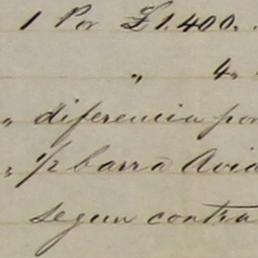 1 Por £1.400.
" 4"
" diferencia por
" 1/2 barra Avia
segun contra